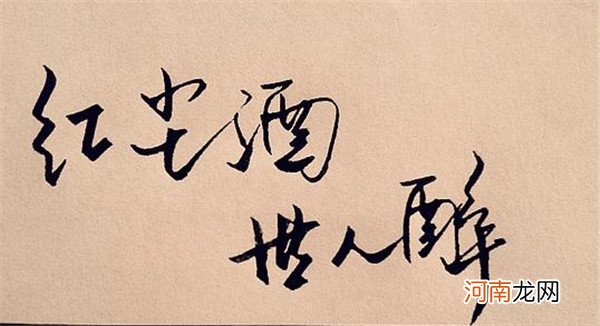 红尘酒
世人醉
河南龙网